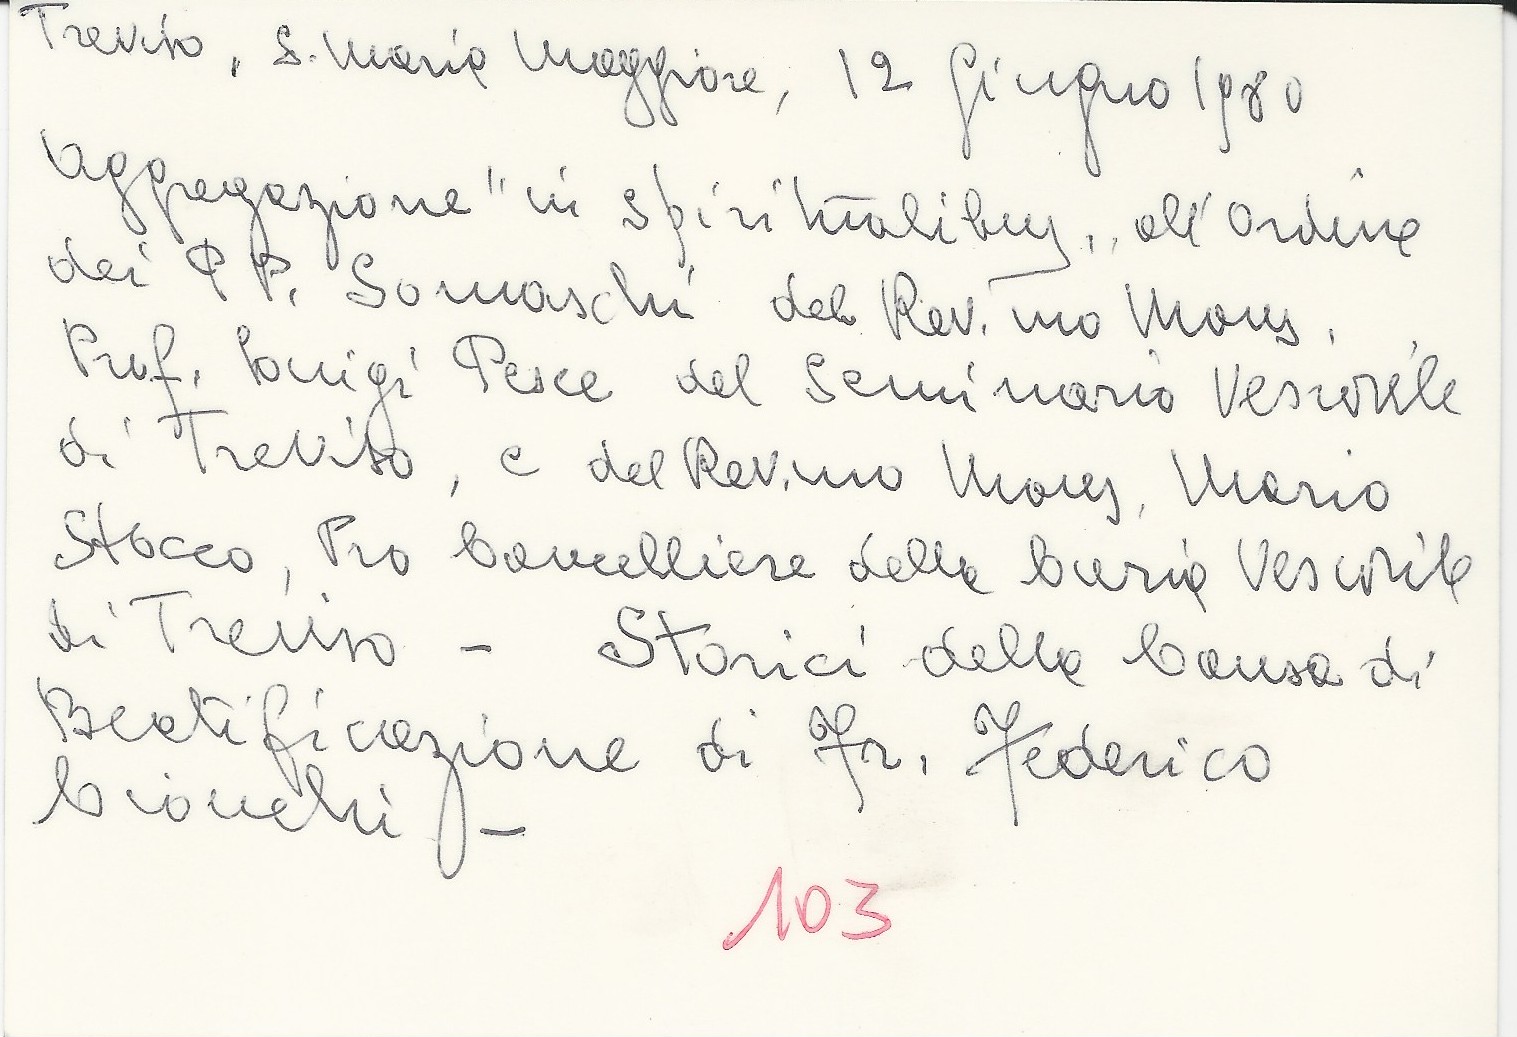 Treviso, S. Maria Maggiore, 12 Giugno 1980
Aggregazione "in spiritualibus" all'Ordine
dei PP. Somaschi del Rev.mo Mons.
Prof. Luigi Pesce del Seminario Vescovile
di Treviso, e del Rev.mo Mons. Mario
Stocco, Pro Cancelliere della Curia Vescovile
di Treviso - Storici della Causa di
Beatificazione di Fr. Federico
Cionchi -
103